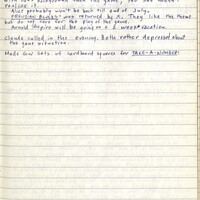 realize it.
Alex probably won't be back till end of July.
PRECISION BLOCKS was returned by A. They like the theme
but do not care for the play of the game.
Arnold Shapiro will be going on a 2 week vacation.
Claude called in the evening. Both rather depressed about
the game situation.
Made new sets of cardboard squares for TAKE-A-NUMBER!